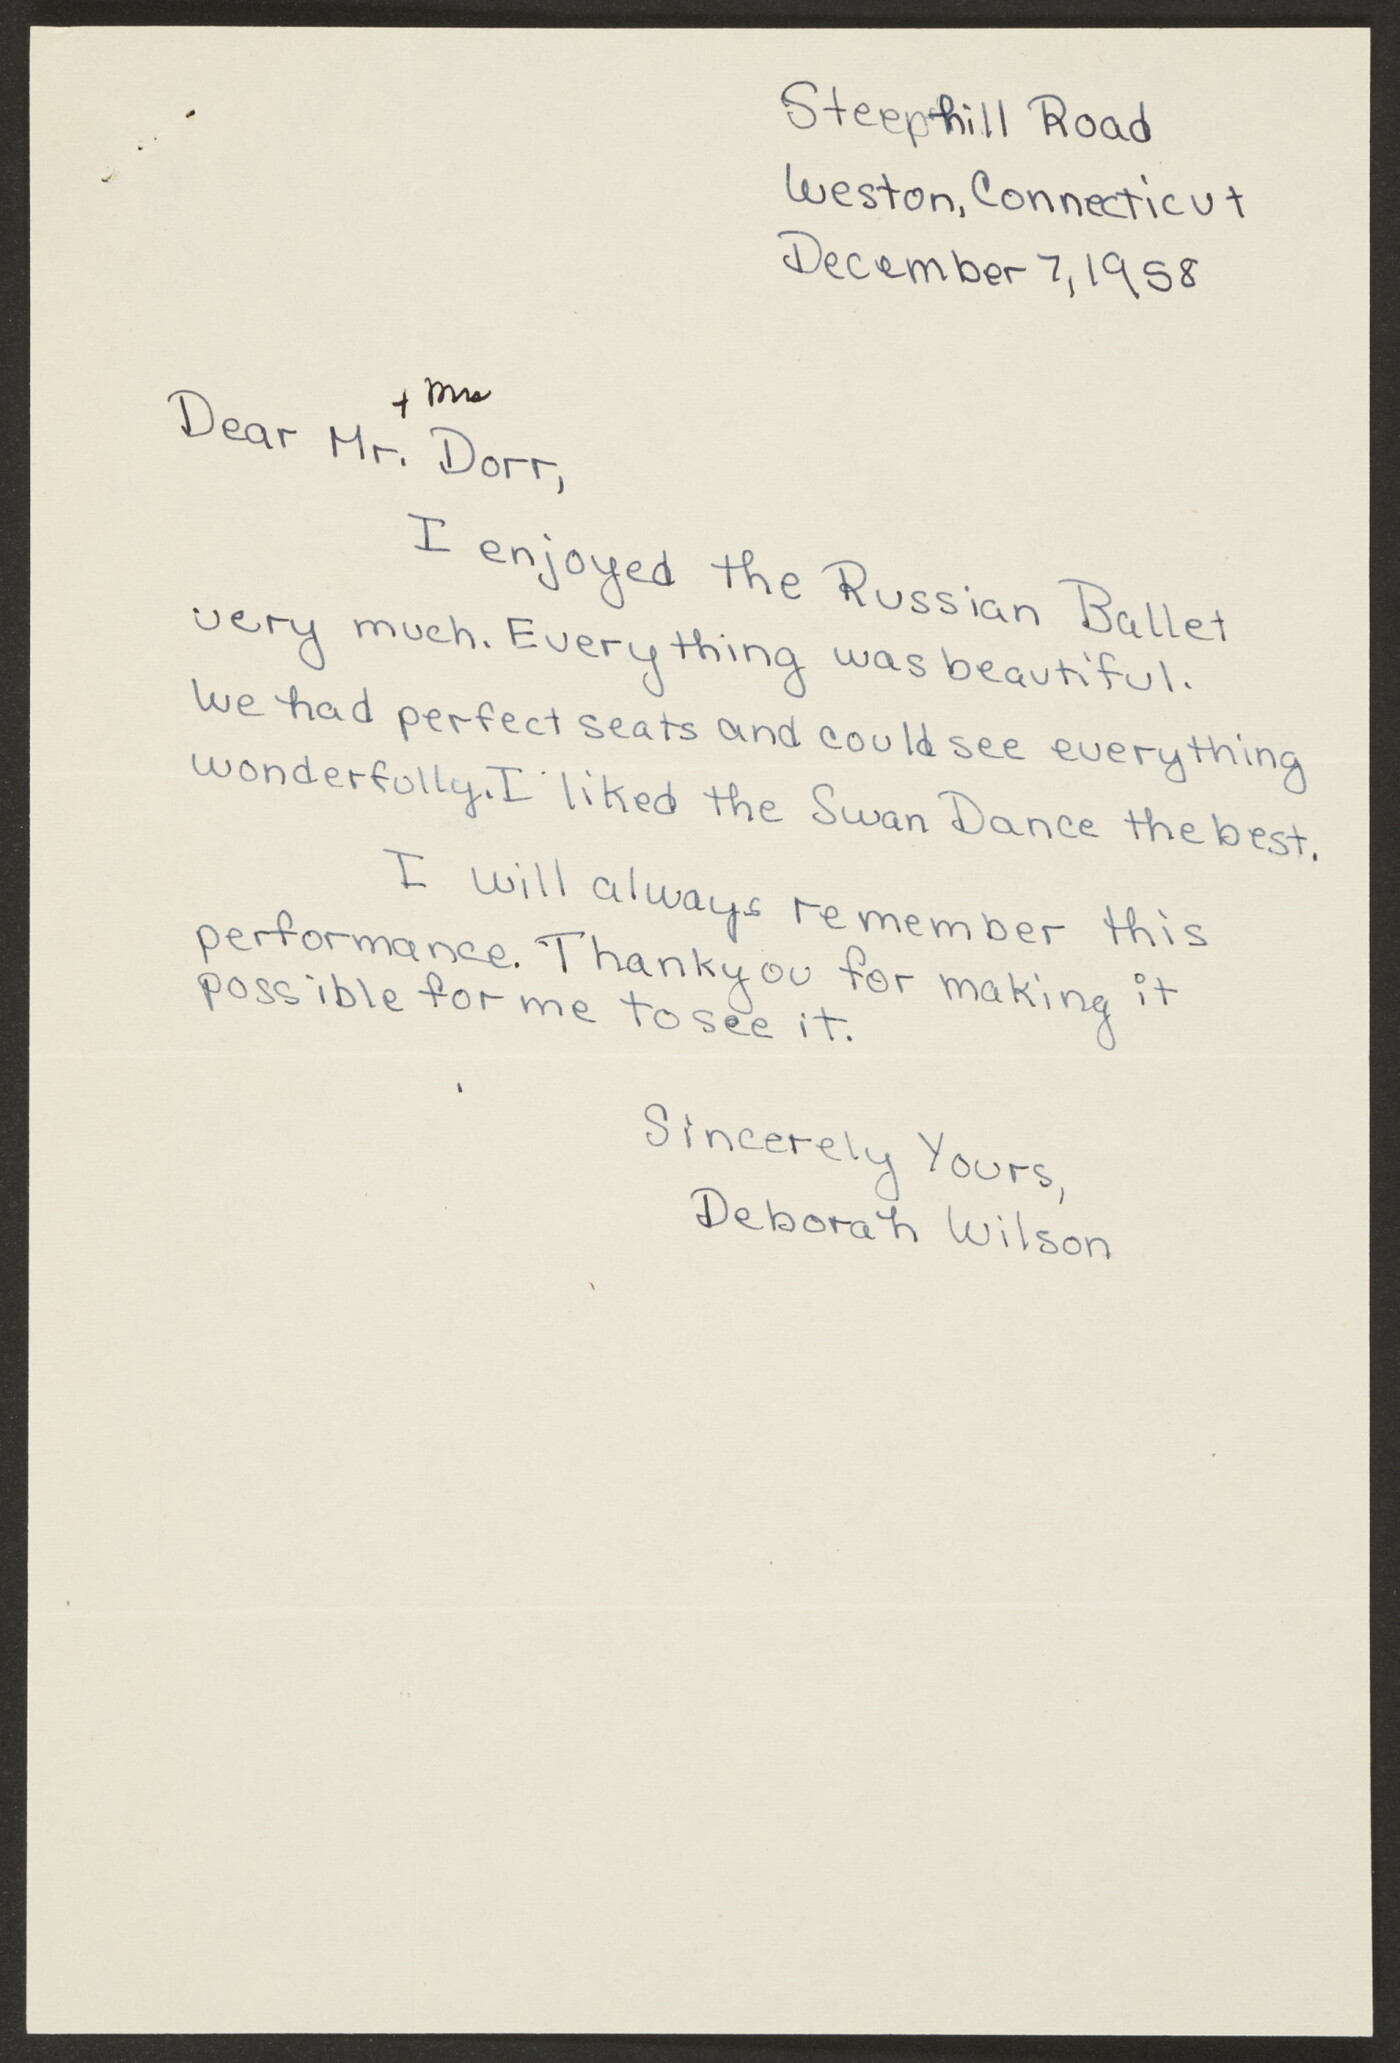 Steephill Road
Weston, Connecticut
December 7, 1958
+ Mrs
Dear Mr. Dorr,
I enjoyed the Russian Ballet
very much. Everything was beautiful.
We had perfect seats and could see everything
wonderfully. I liked the Swan Dance the best.
I will always remember this
performance. Thank you for making it
possible for me to see it.
Sincerely Yours,
Deborah Wilson